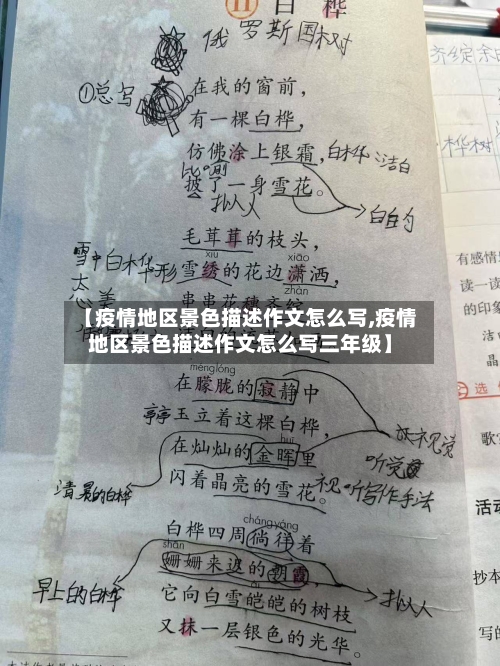 11 白桦
俄罗斯国树
①总写
在我的窗前，
有一棵白桦，
仿佛涂上银霜，
白桦 洁白
比喻
披了一身雪花。
拟人
白白的
毛茸茸的枝头，
雪中白桦 形态美
xiù xiāo
雪绣的花边潇洒，
zhàn
串串花穗齐绽，
【疫情地区景色描述作文怎么写,疫情
地区景色描述作文怎么写三年级】
méng lóng
在朦胧的寂静中
亭亭玉立着这棵白桦，
huī
在灿灿的金晖里
视觉
听觉
闪着晶亮的雪花。
视听写作手法
清晨的白桦
cháng yáng
白桦四周徜徉着
shān
姗姗来迟的朝霞，
早上的白桦
它向白雪皑皑的树枝
拟人
又抹一层银色的光华。
齐绽
桦树
有感情
读一读
的印象
晶
选
歌
活动
抄本
写的